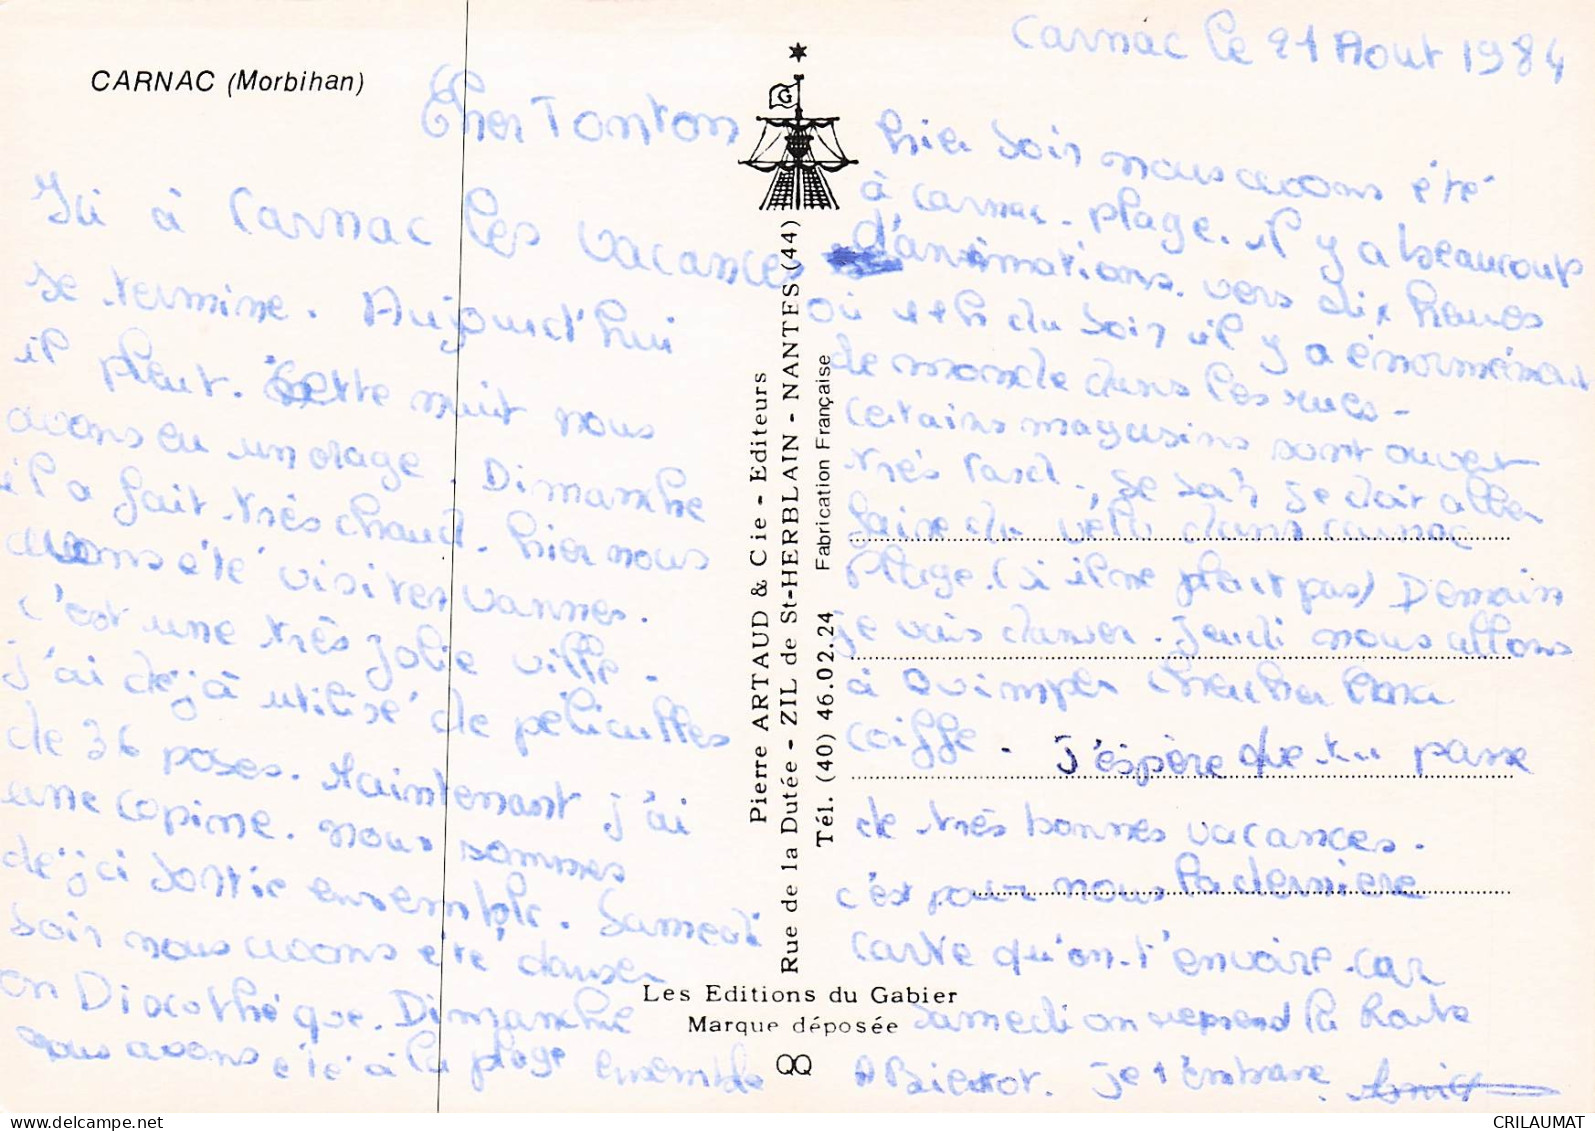 CARNAC (Morbihan)
Carnac le 21 Aout 1984
Cher Tonton
Ici à Carnac les vacances
se termine. Aujourd'hui
il pleut. Cette nuit nous
avons eu un orage. Dimanche
il a fait très chaud. hier nous
avons été visiter vannes.
c'est une très jolie ville.
j'ai déjà utilisé de peliculles
de 36 poses. Maintenant j'ai
une copine. nous sommes
déjà sortie ensemble. Samedi
soir nous avons été danser
en Discothèque. Dimanche
nous avons été à la plage ensemble
hier soir nous avons été
à carnac-plage. il y a beaucoup
d'animations. vers dix heures
où 11h du soir il y a énormément
de monde dans les rues-
certains magasins sont ouvert
très tard., se soir je doit aller
faire du vélo dans carnac
Plage. (si il ne pleut pas) Demain
je vais danser. jeudi nous allons
à Quimper chercher
coiffe. j'éspère que tu passe
de très bonnes vacances.
c'est pour nous la dernière
carte qu'on t'envoire car
samedi on reprend la Route
A Bientot. je t'embrasse
G
Pierre ARTAUD & Cie - Editeurs
Rue de la Dutée - ZIL de St-HERBLAIN - NANTES (44)
Tél. (40) 46.02.24 Fabrication Française
Les Editions du Gabier
Marque déposée
QQ
CRILAUMAT